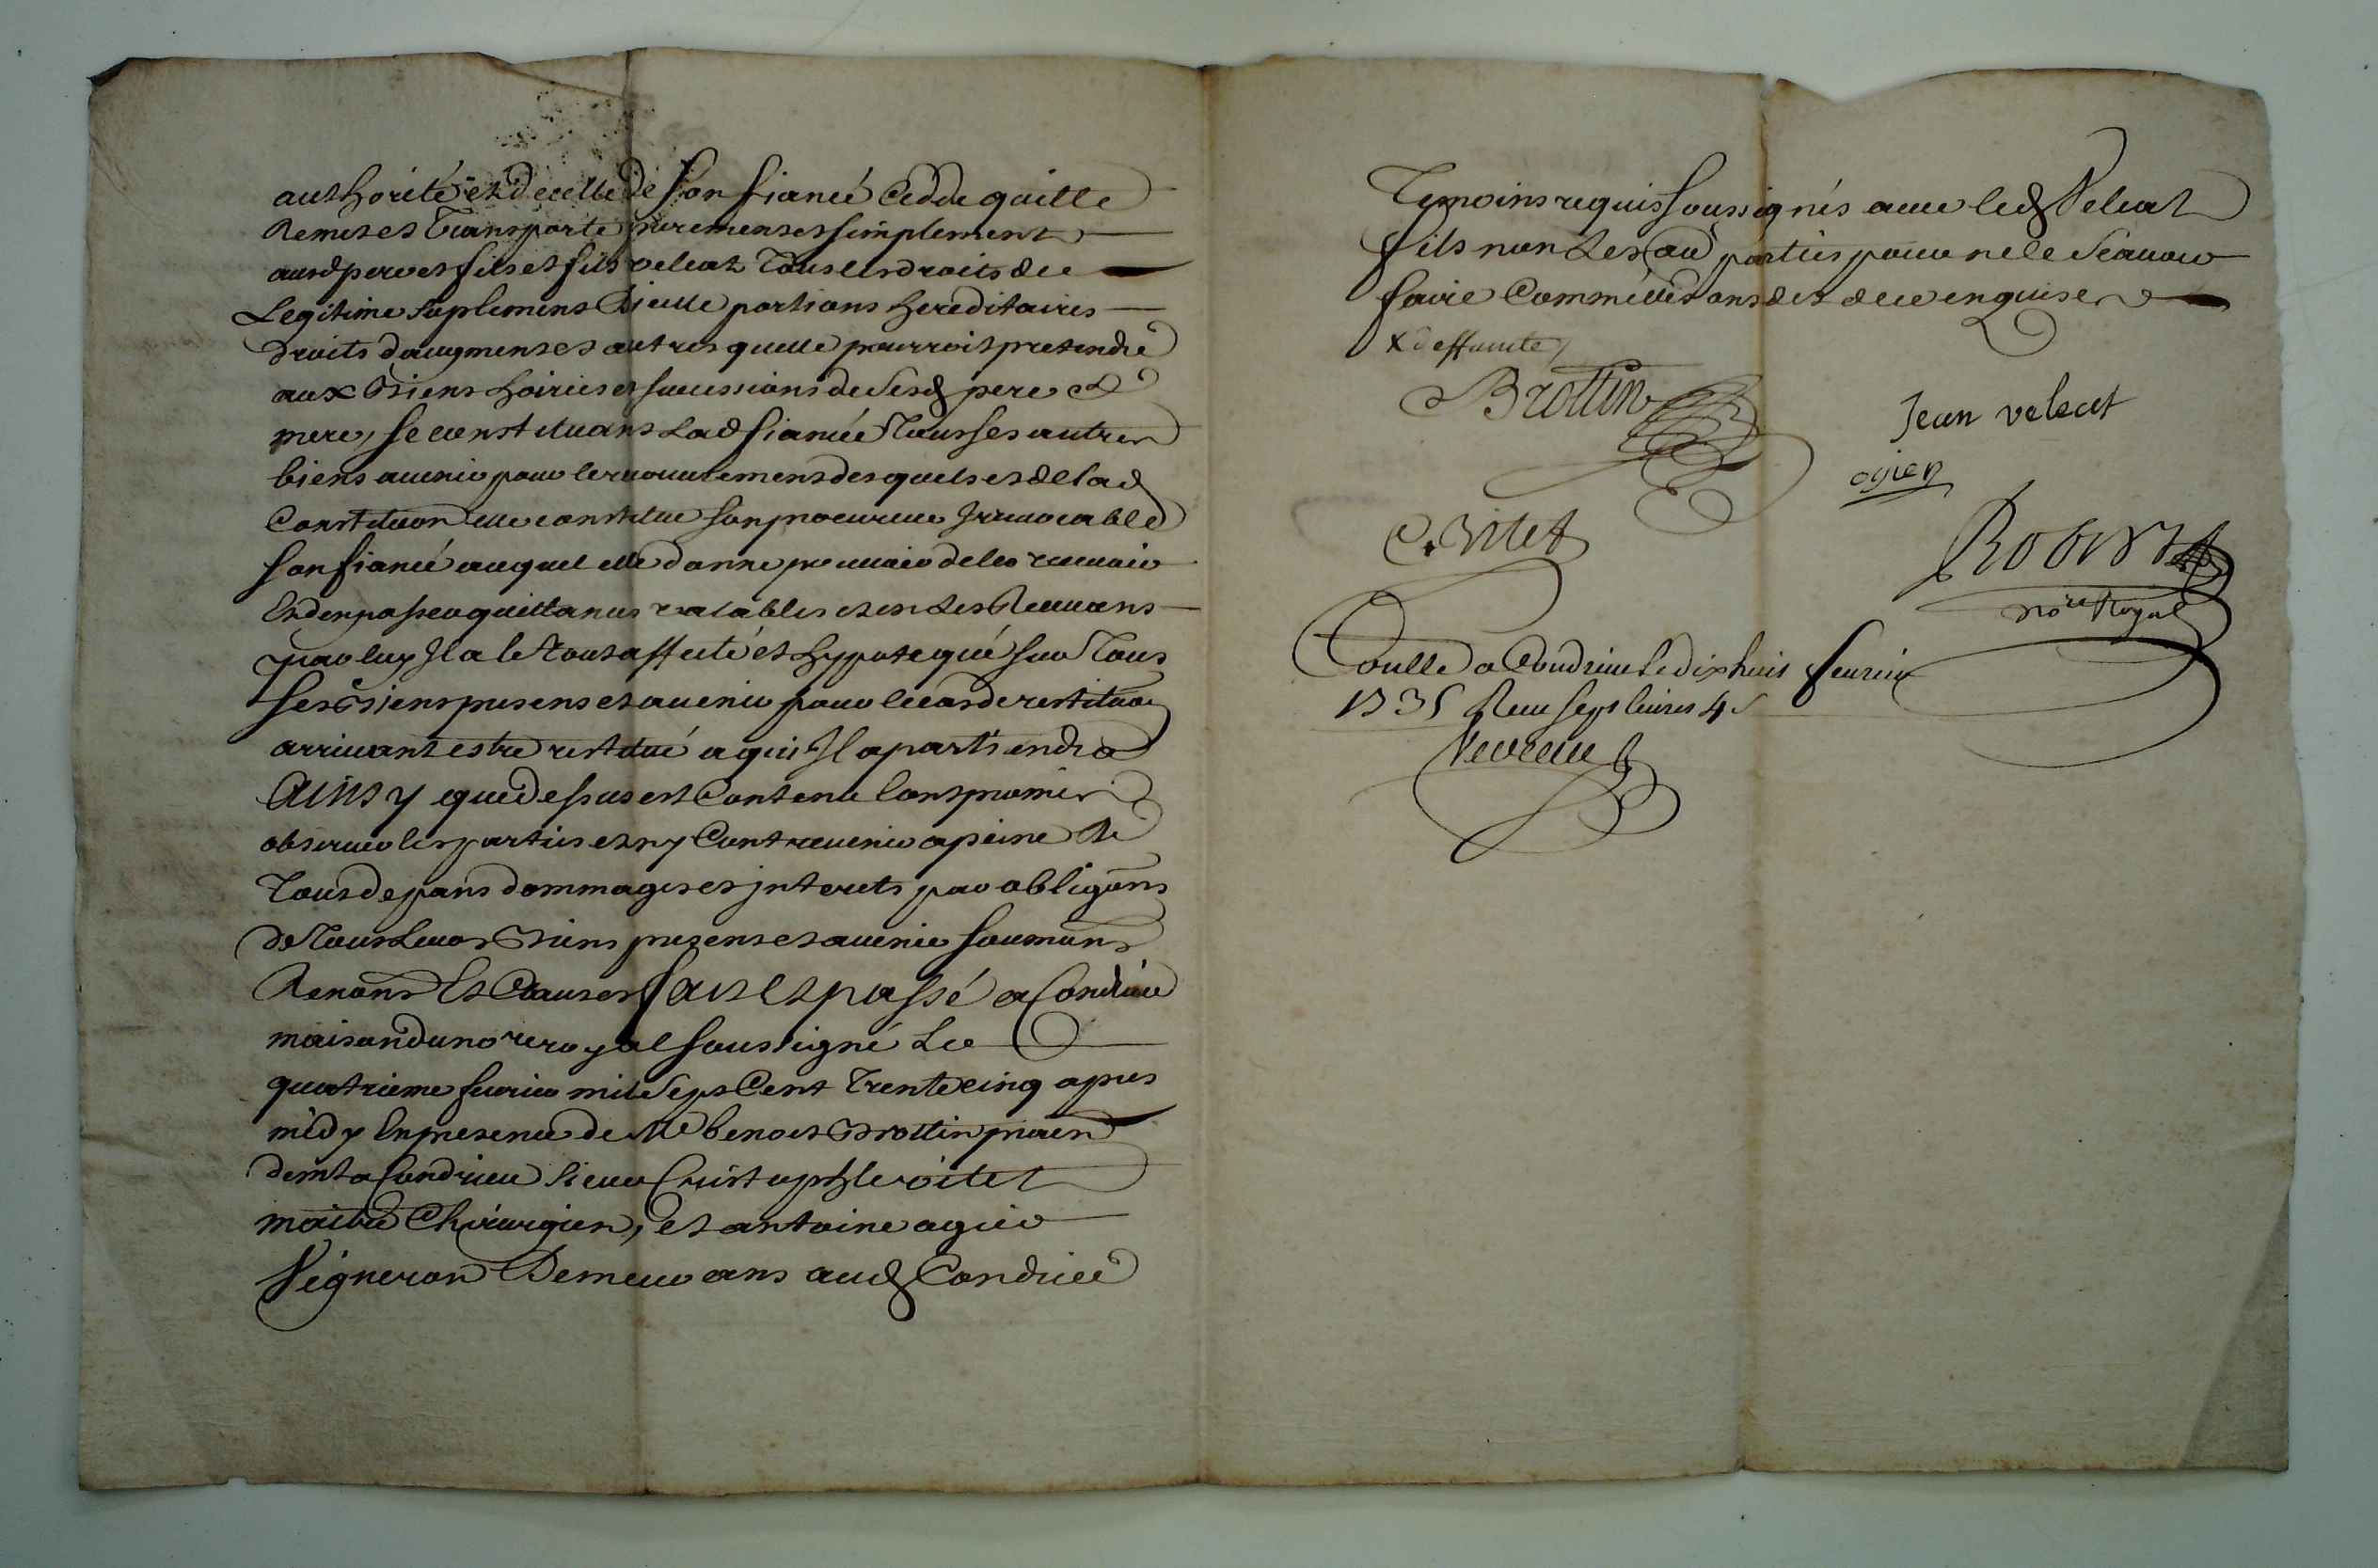 authorité et de celle de son fiancé cedde quitte
Remet et Transporte purement et simplement
ausd pere et fils et fils veleat Tous les droits de
Legitime suplement d'icelle portions hereditaires
droits daugment et autres quelle pourroit pretendre
aux Biens hoiries et successions de sesd pere et
mere, se constituant Lad fiancée Tous ses autres
biens avenir pour le recouvrement desquels et de lad
Constituõn elle constitue son procureur Irrevocable
son fiancé auquel elle donne pouvoir de les recevoir
Et den passer quittances valables et en les Recevant
par luy Il a le Tout affecté et hypotequé sur Tous
ses Biens presens et avenir pour le cas de restituõn
arrivant estre restitué a qui Il apartiendra
Ainsy que dessus est Contenu l'ont promis
observer les parties et ny Contrevenir a peine de
Tous depans dommages et jnterets par obligõns
de Tous Leurs Biens presens et avenir soumõns
Renõns Et Clauses fait et passé a Condrieu
maison du nore royal soussigné Le
quatrieme fevrier mil Sept Cent Trente cinq apres
midy En presence de Me benoit Brottin pratien
demt a Condrieu sieur Cristophle vitet
maitre Chirurgien, et antoine ogier
Vigneron Demeurans aud Condrieu
Temoins requis soussignés avec led Veleat
fils non Les au parties pour ne le Scavoir
faire Comme elles ont dit de ce enquises
x deffunte
Brottin
Jean veleat
ogier
C. Vitet
Robert
nore Royal
Conllé a Condrieu Le dix huit fevrier
1735 Recu sept livres 4 s